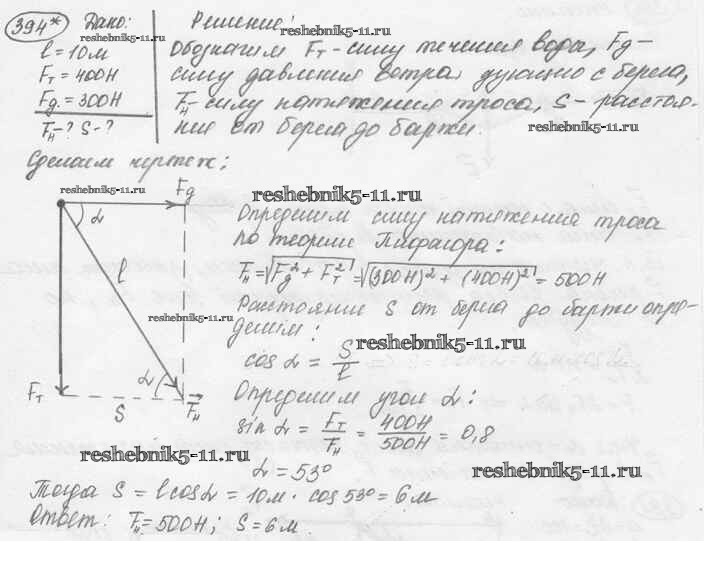 394* Дано: Решение:
l = 10м
Fт = 400Н
Fg = 300Н
Fн - ? S - ?
reshebnik5-11.ru
Обозначим Fт - силу течения воды, Fg -
силу давления ветра дующего с берега,
Fн - силу натяжения троса, S - расстоя-
ние от берега до баржи.
reshebnik5-11.ru
Сделаем чертеж:
reshebnik5-11.ru
Fg
α
l
reshebnik5-11.ru
α
Fт
S
Fн
reshebnik5-11.ru
Определим силу натяжения троса
по теореме Пифагора:
Fн = √(Fg² + Fт²) = √((300Н)² + (400Н)²) = 500Н
Расстояние S от берега до баржи опре-
делим:
reshebnik5-11.ru
cos α = S/l
Определим угол α:
sin α = Fт/Fн = 400Н/500Н = 0,8
reshebnik5-11.ru
α = 53°
reshebnik5-11.ru
Тогда S = l cos α = 10м · cos 53° = 6м
Ответ: Fн = 500Н; S = 6м.